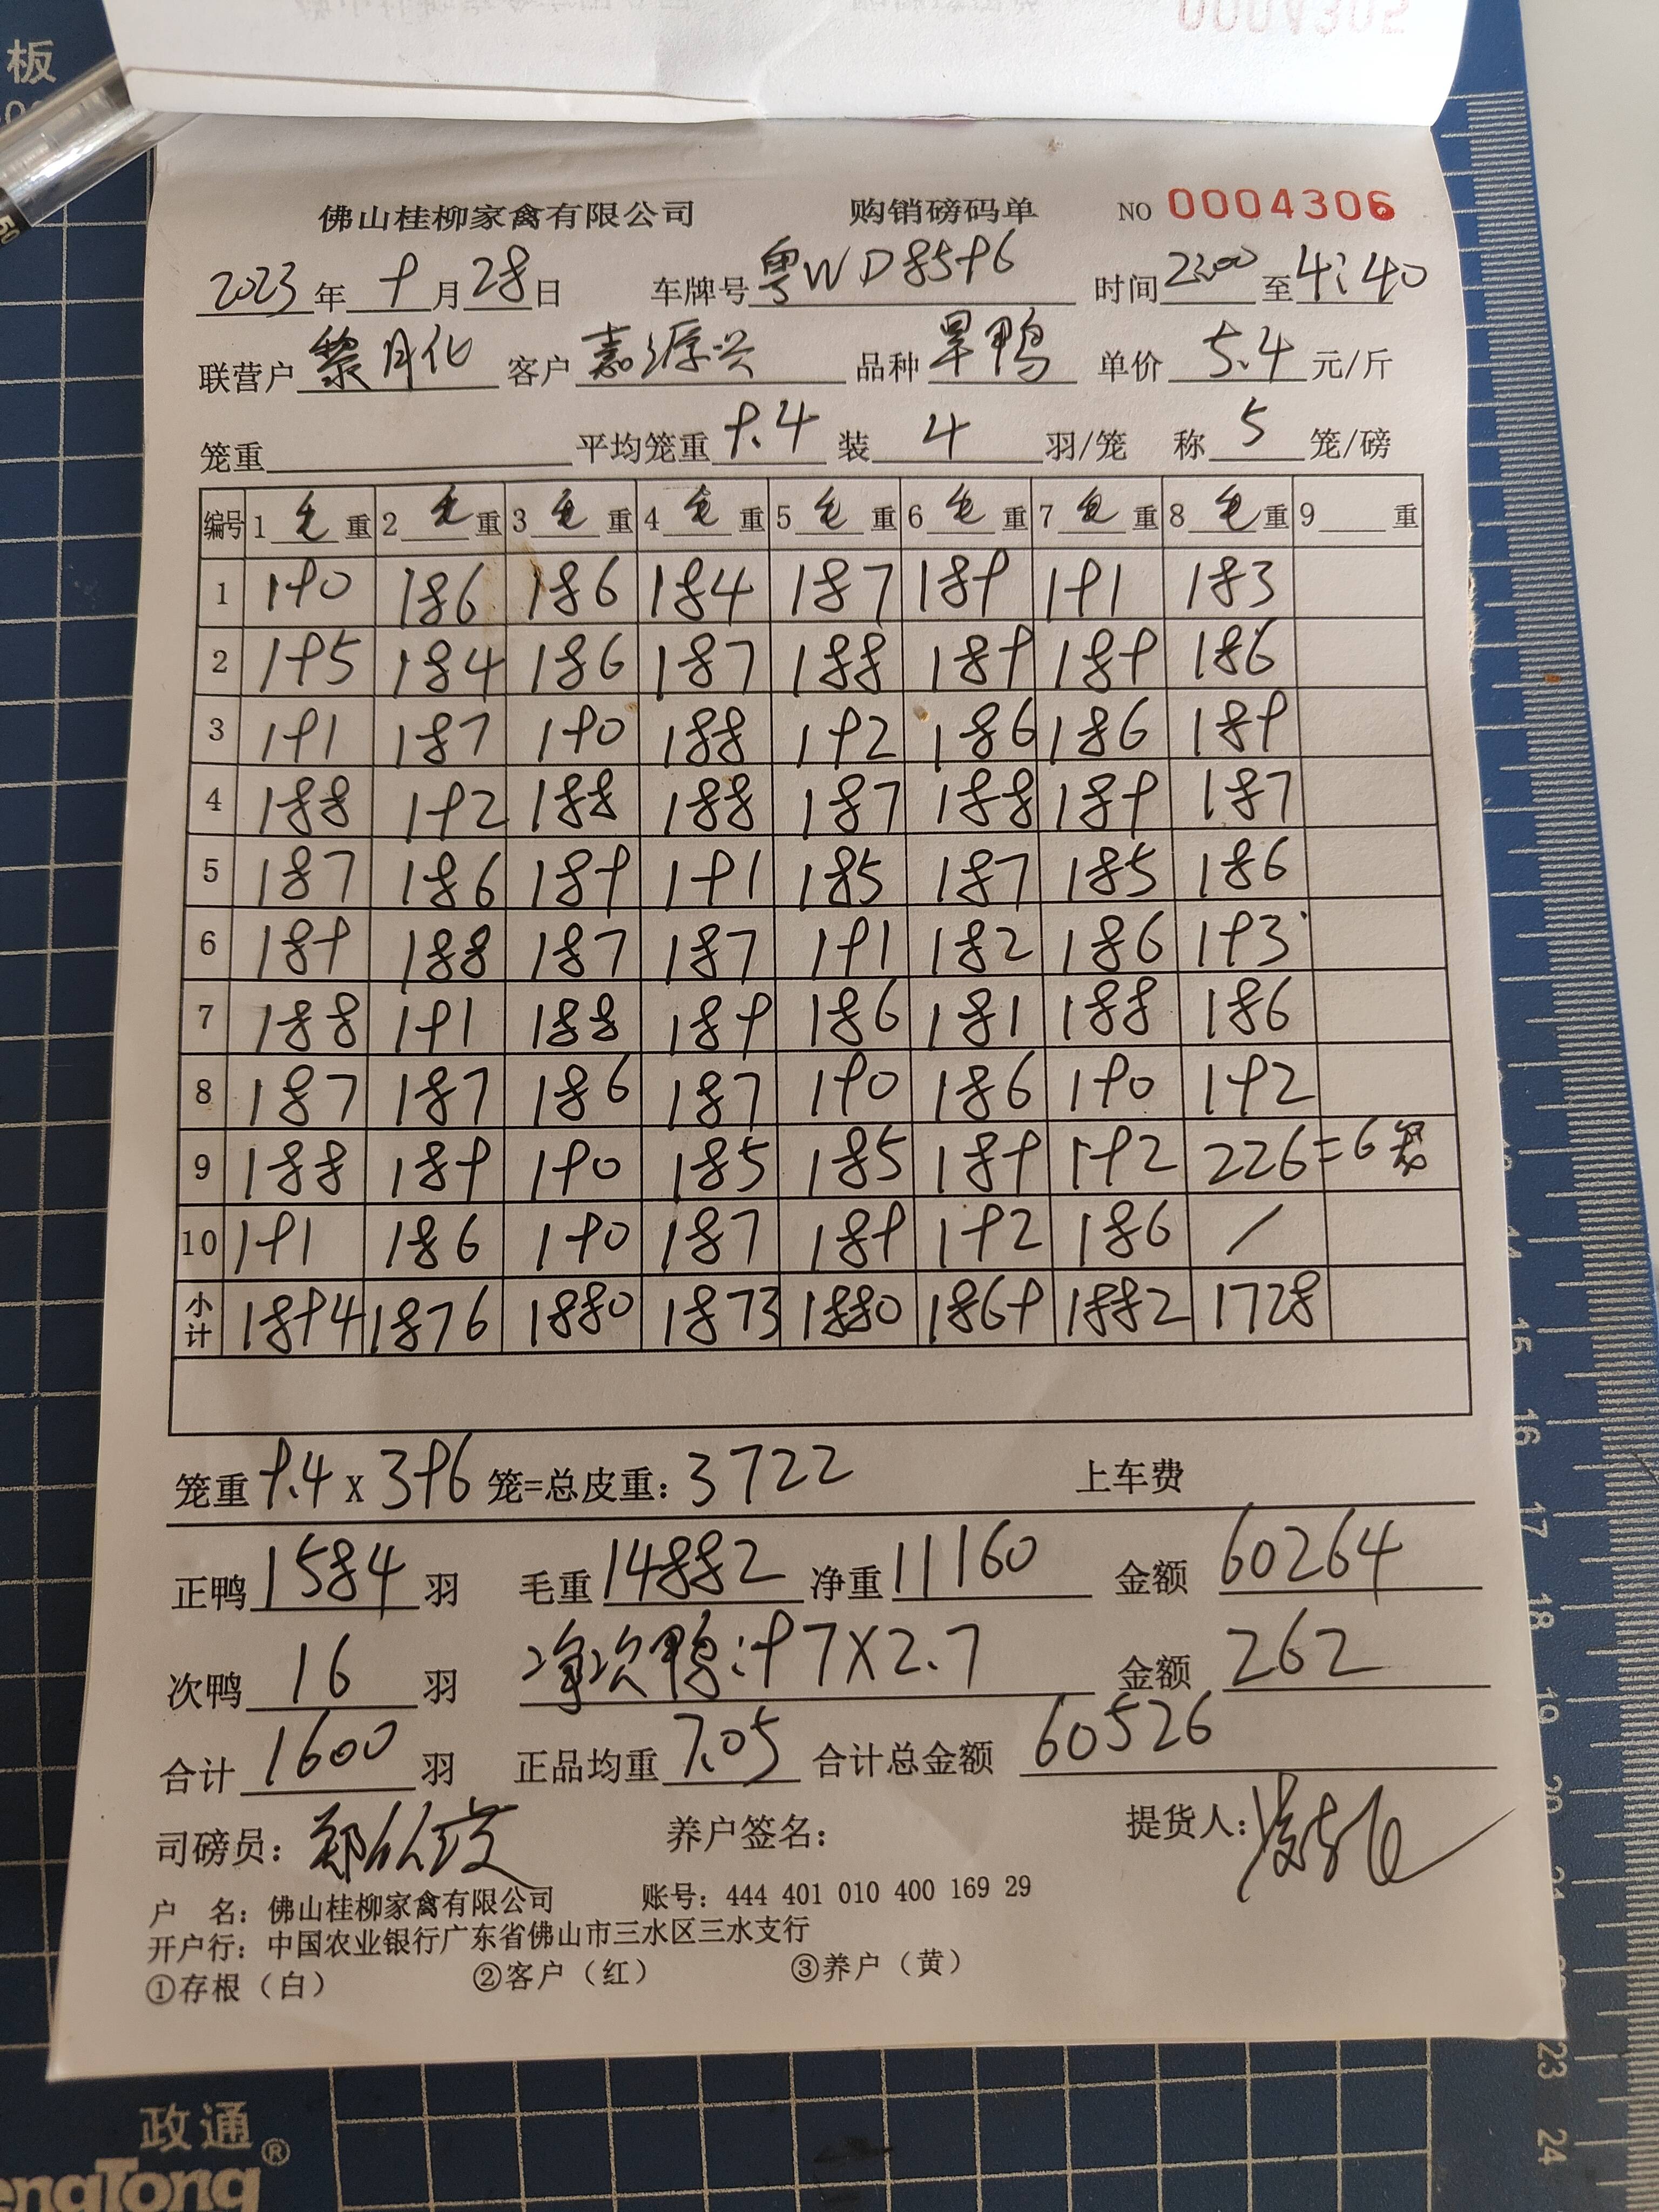 板
0004305
佛山桂柳家禽有限公司 购销磅码单 NO 0004306
2023年9月28日 车牌号粤WD8596 时间2:00至4:40
联营户黎月化 客户嘉源兴 品种旱鸭 单价5.4元/斤
笼重 平均笼重9.4装4羽/笼 称5笼/磅
编号 1毛重 2毛重 3毛重 4毛重 5毛重 6毛重 7毛重 8毛重 9重
1 190 186 186 184 187 189 191 183
2 195 184 186 187 188 189 189 186
3 191 187 190 188 192 186 186 189
4 188 192 188 188 187 188 189 187
5 187 186 189 191 185 187 185 186
6 189 188 187 187 191 182 186 193
7 188 191 188 189 186 181 188 186
8 187 187 186 187 190 186 190 192
9 188 189 190 185 185 189 192 226=6笼
10 191 186 190 187 189 192 186 /
小计 1894 1876 1880 1873 1880 1869 1882 1728
笼重9.4x396笼=总皮重:3722 上车费
正鸭1584羽 毛重14882 净重11160 金额60264
次鸭16羽 净次鸭:97X2.7 金额262
合计1600羽 正品均重7.05 合计总金额60526
司磅员: 养户签名: 提货人:
户 名:佛山桂柳家禽有限公司 账号:444 401 010 400 169 29
开户行:中国农业银行广东省佛山市三水区三水支行
①存根(白) ②客户(红) ③养户(黄)
政通®
engTong
14
15
16
17
18
19
20
21
23
24